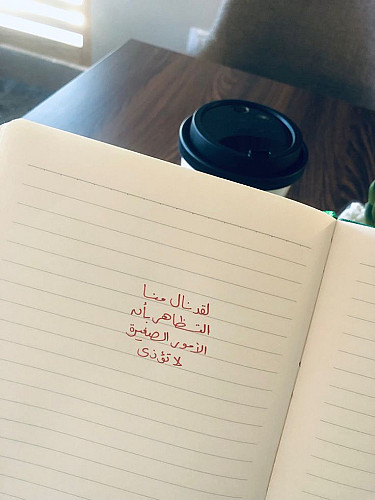 لقد نال منا
التظاهر بأن
الأمور الصغيرة
لا تؤذي